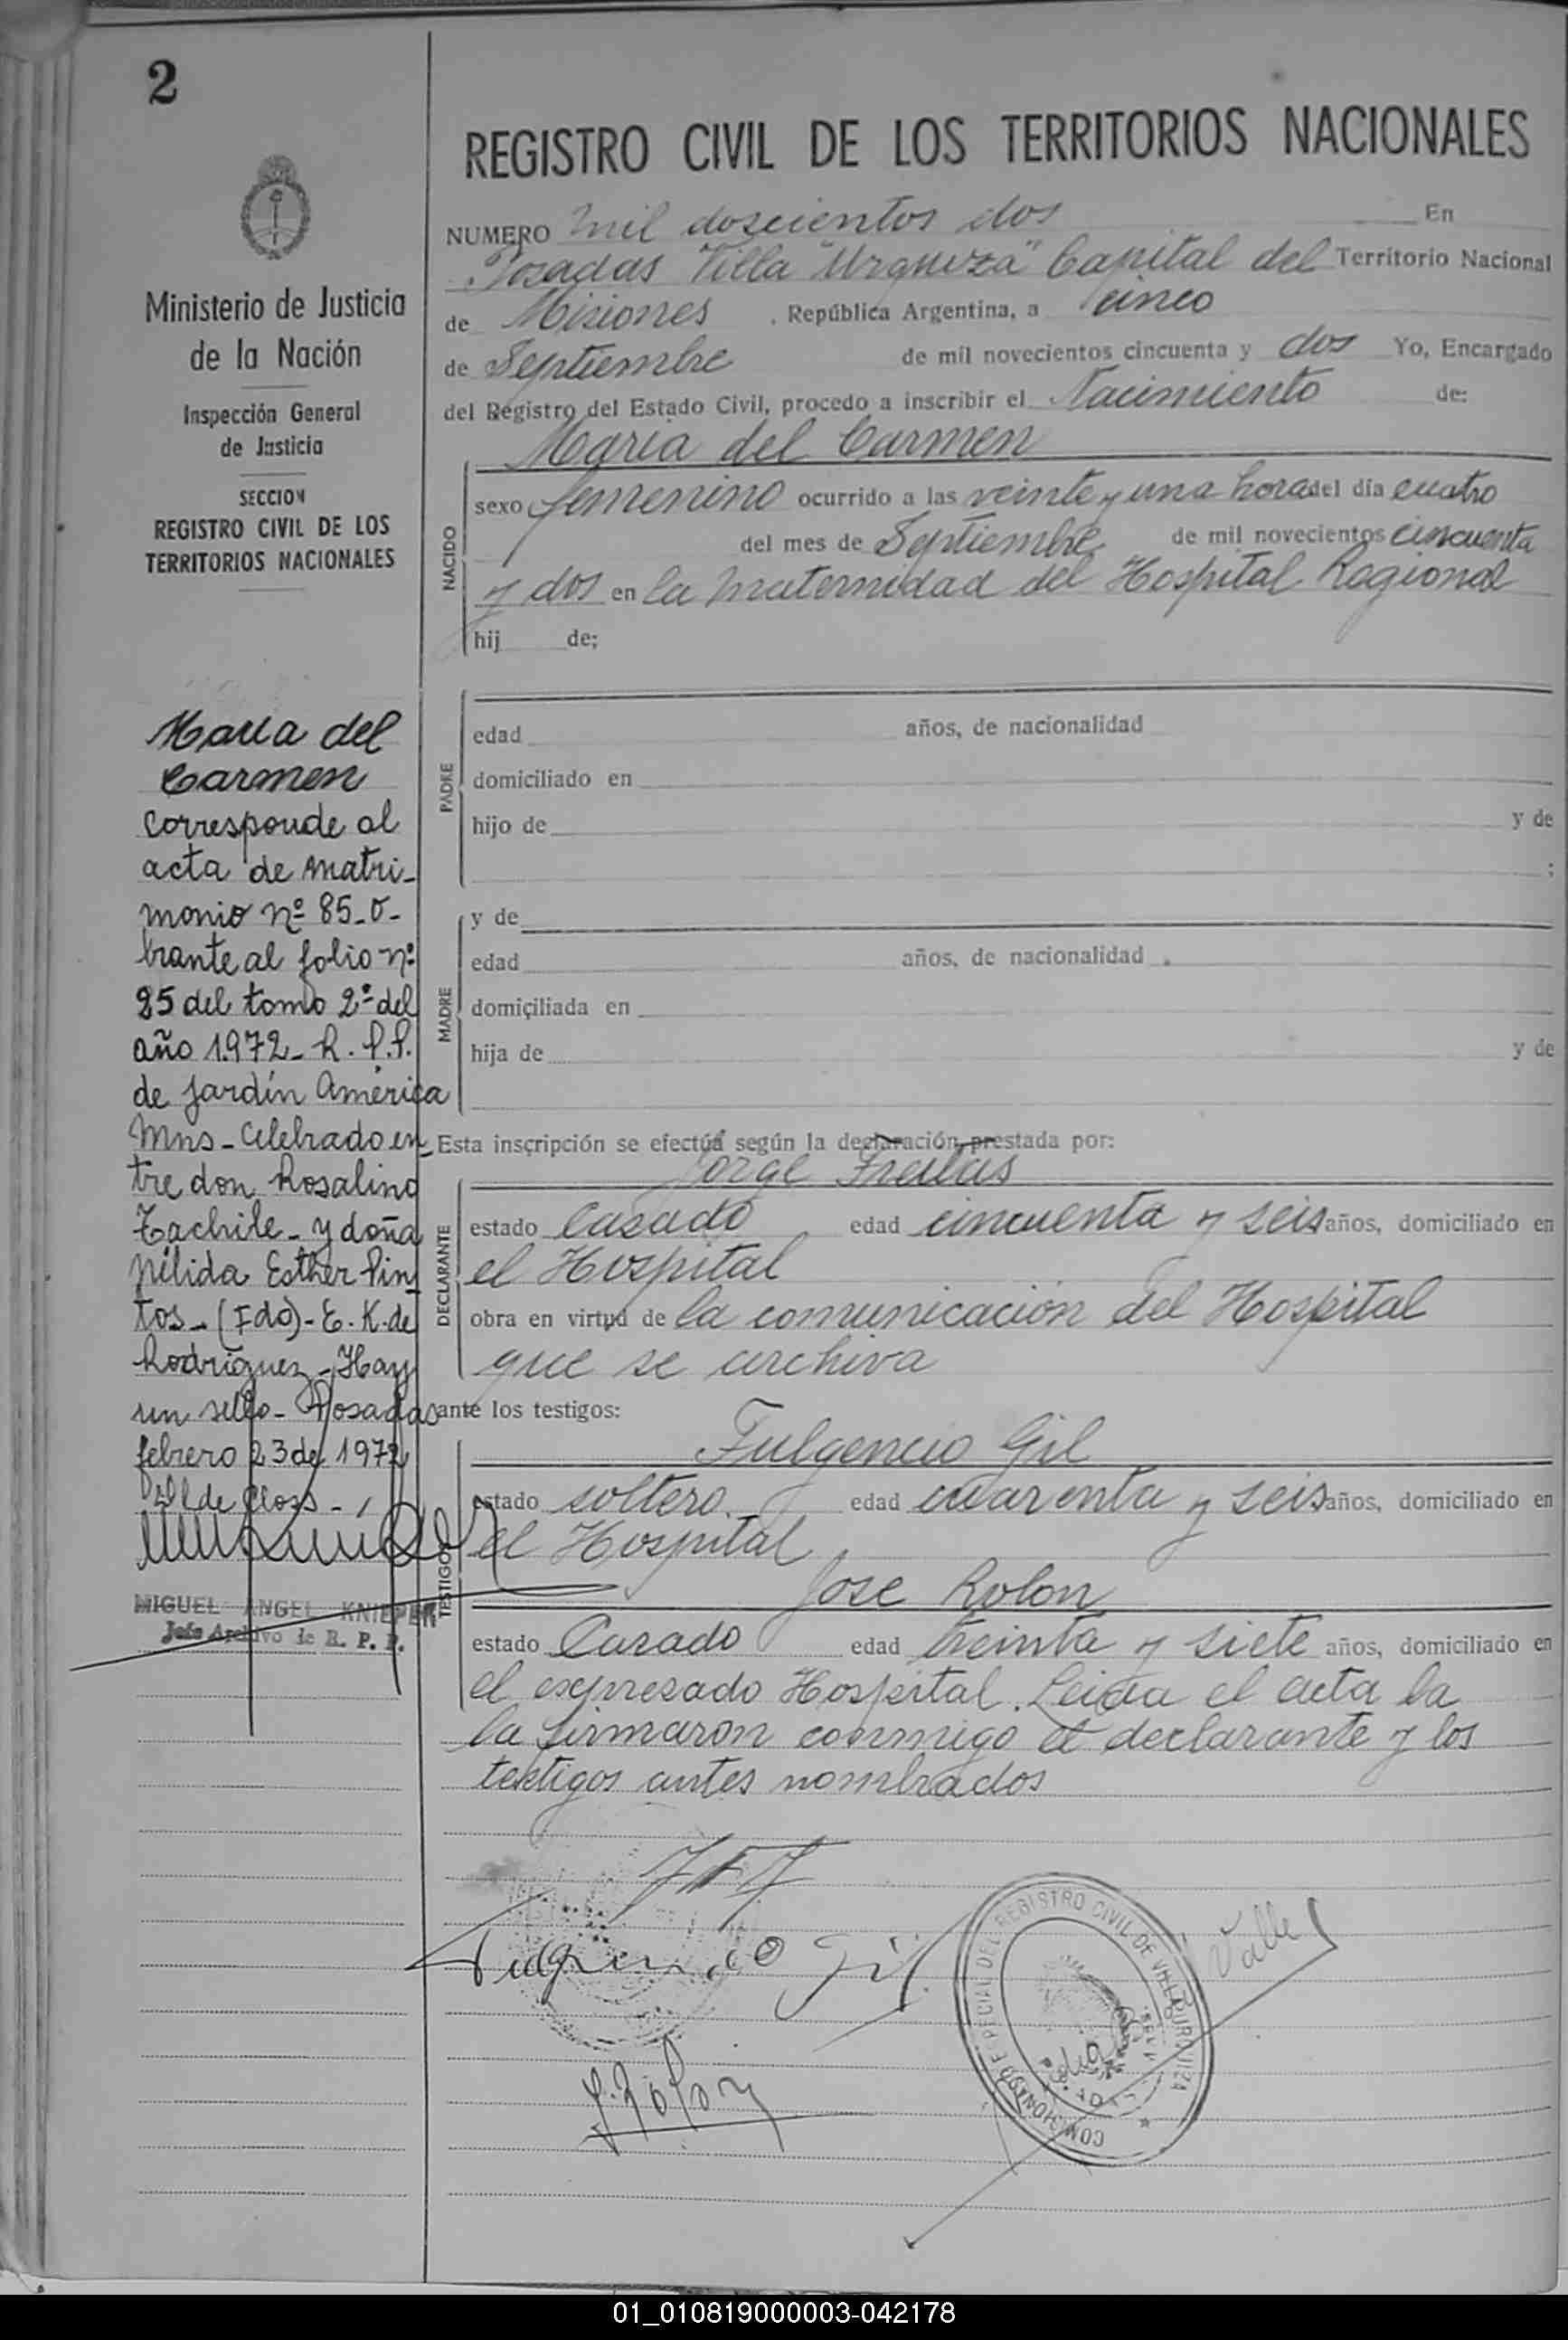 2
Ministerio de Justicia
de la Nación
Inspección General
de Justicia
SECCION
REGISTRO CIVIL DE LOS
TERRITORIOS NACIONALES
Maria del
Carmen
Corresponde al
acta de matri-
monio nº 85-o-
brante al folio nº
25 del tomo 2º del
año 1972- R.P.P.
de Jardín América
Mns - Celebrado en-
tre don Rosalino
y doña
Nélida Esther Pin
tos - (Fdo) - E. K. de
Rodriguez - Hay
un sello - Posadas
febrero 23 de 1972
MIGUEL ANGEL KNIEPER
Jefe Archivo de R. P. P.
REGISTRO CIVIL DE LOS TERRITORIOS NACIONALES
NUMERO Mil doscientos dos En
Posadas Villa "Urquiza" Capital del Territorio Nacional
de Misiones , República Argentina, a cinco
de Septiembre de mil novecientos cincuenta y dos Yo, Encargado
del Registro del Estado Civil, procedo a inscribir el Nacimiento de:
Maria del Carmen
NACIDO
sexo femenino ocurrido a las veinte y una hora del día cuatro
del mes de Septiembre de mil novecientos cincuenta
y dos en la Maternidad del Hospital Regional
hij de;
PADRE
edad años, de nacionalidad
domiciliado en
hijo de y de
;
MADRE
y de
edad años, de nacionalidad .
domiciliada en
hija de y de
Esta inscripción se efectúa según la declaración prestada por:
DECLARANTE
Jorge Freitas
estado Casado edad cincuenta y seis años, domiciliado en
el Hospital
obra en virtud de la comunicación del Hospital
que se archiva
ante los testigos:
TESTIGOS
Fulgencio Gil
estado soltero edad cuarenta y seis años, domiciliado en
el Hospital
Jose Rolon
estado Casado edad treinta y siete años, domiciliado en
el expresado Hospital. Leida el acta la
la firmaron conmigo el declarante y los
testigos antes nombrados
Fulgencio Gil
J. Rolon
Valle
REGISTRO CIVIL DE VILLA URQUIZA
01_010819000003-042178